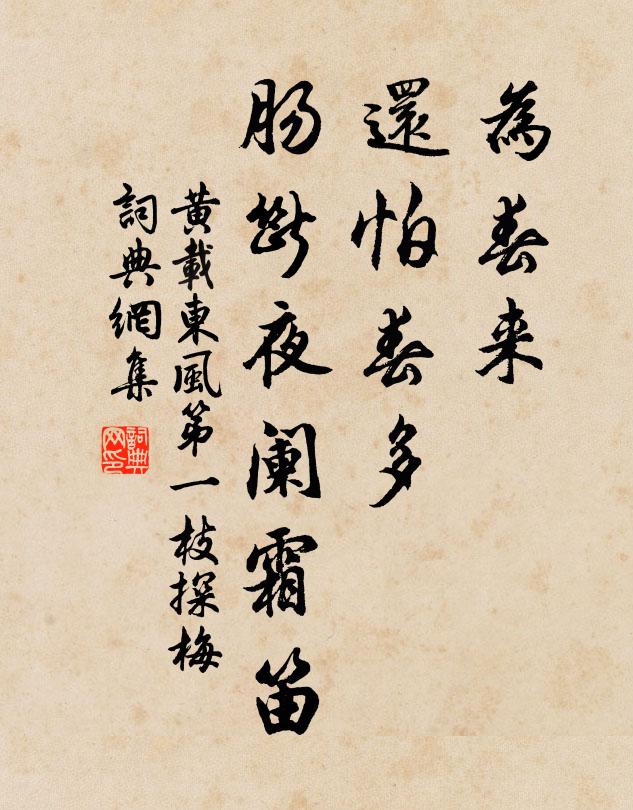 為春来
還怕春多
肠斷夜阑霜笛
黄載東風第一枝探梅
詞典網集
詞典网印